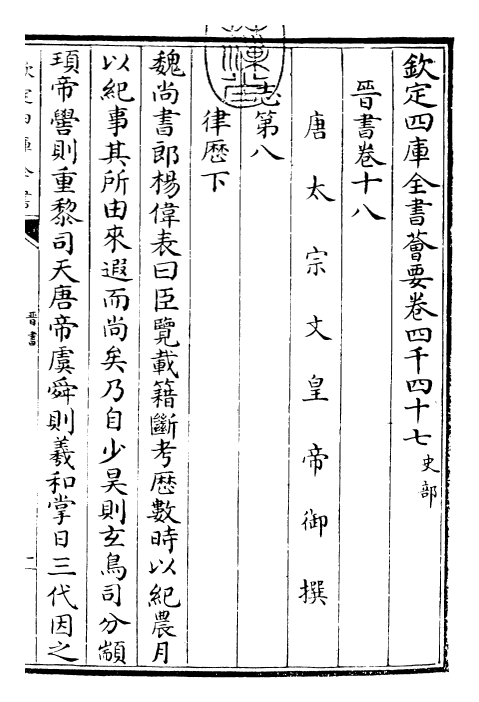 欽定四庫全書薈要卷四千四十七 史部
晉書卷十八
唐太宗文皇帝御撰
志第八
律歷下
魏尚書郎楊偉表曰臣覽載籍斷考歷數時以紀農月
以紀事其所由來遐而尚矣乃自少昊則玄鳥司分顓
頊帝嚳則重黎司天唐帝虞舜則羲和掌日三代因之
欽定四庫全書
晉書